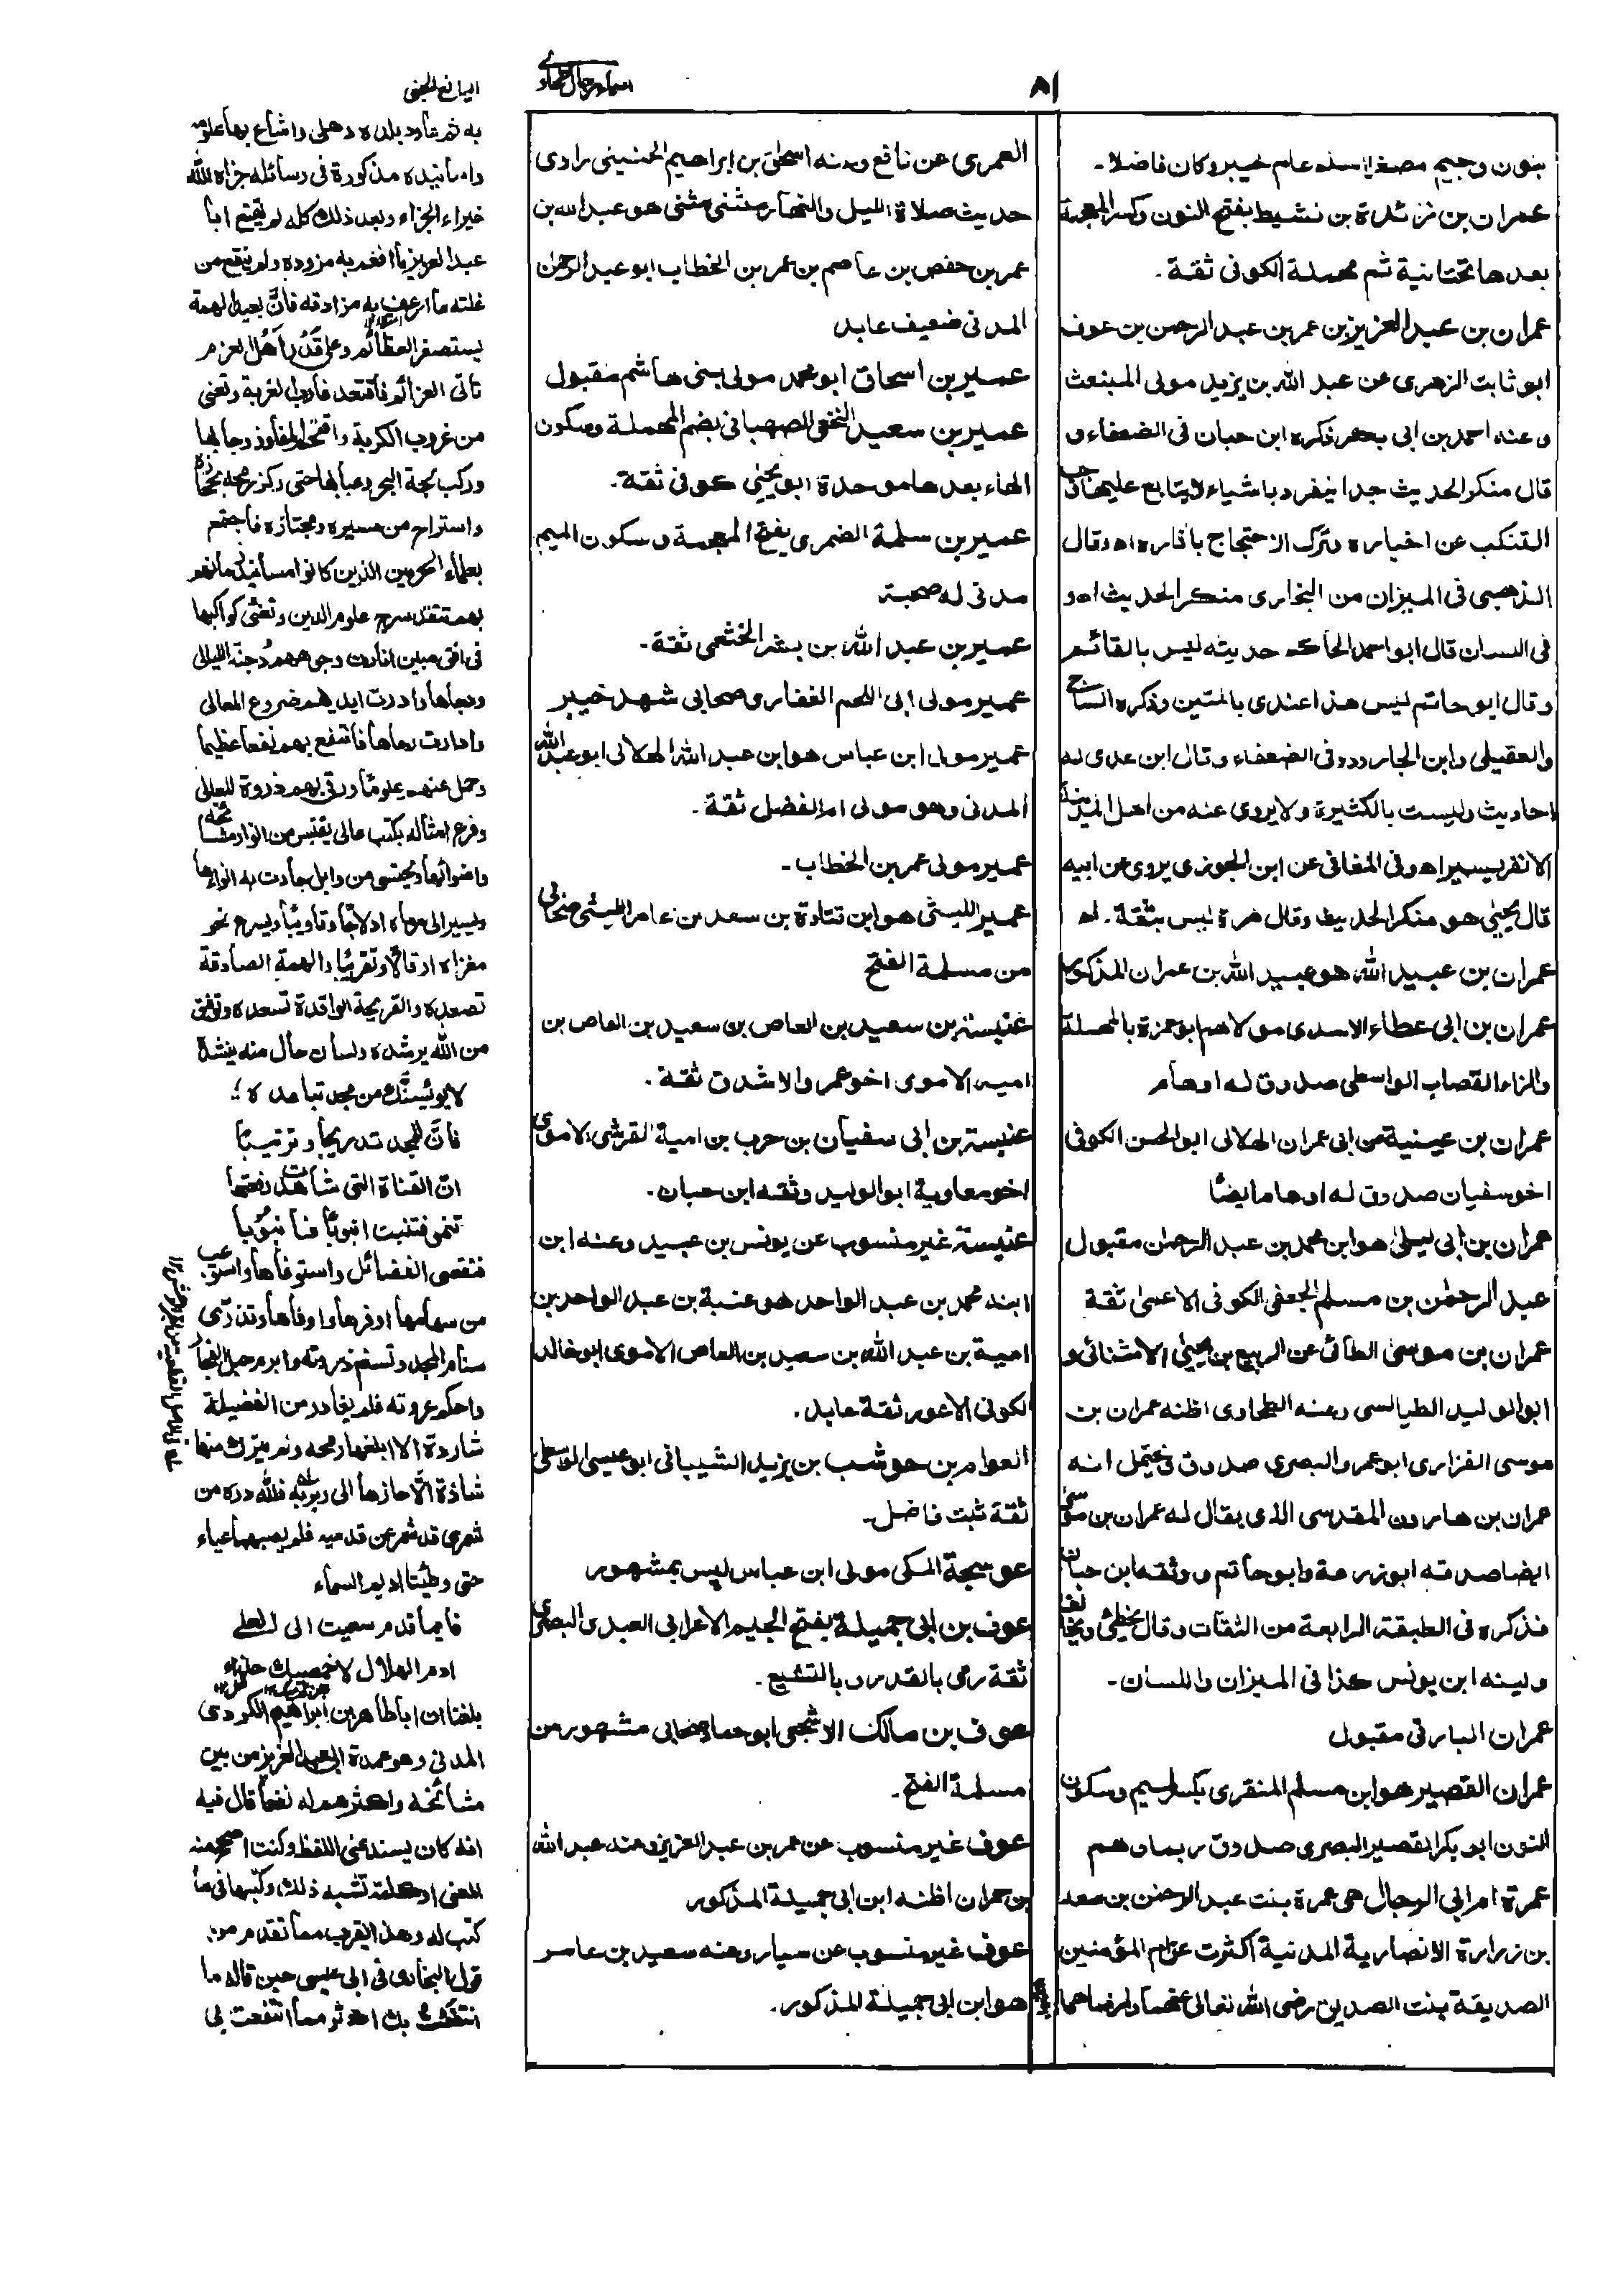 ٨١
اسماء رجال طحاوى
اليانع الجنى
بنون وجيم مصغرا اسلم عام خيبر وكان فاضلا۔
عمران بن زائدة بن نشيط بفتح النون وكسر المعجمة
بعدها تحتانية ثم مهملة الكوفى ثقة۔
عمران بن عبد العزيز بن عمر بن عبد الرحمن بن عوف
ابو ثابت الزهرى عن عبد الله بن يزيد مولى المنبعث
وعنه احمد بن ابى بكر ذكره ابن حبان فى الضعفاء و
قال منكر الحديث جدا ينفرد باشياء لا يتابع عليها فوجب
التنكب عن اخباره وترك الاحتجاج باثاره اه وقال
الذهبى فى الميزان من البخارى منكر الحديث اه و
فى اللسان قال ابو احمد الحاكم حديثه ليس بالقائم
وقال ابو حاتم ليس هذا عندى بالمتين وذكره الساجى
والعقيلى وابن الجارود فى الضعفاء وقال ابن عدى له
احاديث وليست بالكثيرة ولا يروى عنه من اهل المدينة
الا نفر يسير اه وفى المغانى عن ابن الجوزى يروى عن ابيه
قال يحيى هو منكر الحديث وقال مرة ليس بثقة۔ اه
عمران بن عبيد الله هو عبيد الله بن عمران المذكور
عمران بن ابى عطاء الاسدى مولاهم ابو حمزة بالمهملة
والزاء القصاب الواسطى صدوق له اوهام
عمران بن عيينة بن ابى عمران الهلالى ابو الحسن الكوفى
اخو سفيان صدوق له اوهام ايضًا
عمران بن ابى ليلىٰ هو ابن محمد بن عبد الرحمٰن مقبول
عبد الرحمٰن بن مسلم الجعفى الكوفى الاعمىٰ ثقة
عمران بن موسى الطائى عن الربيع بن يحيىٰ الاشنانى و
ابو الوليد الطيالسى وعنه الطحاوى اظنه عمران بن
موسى الفزارى ابو عمرو البصرى صدوق فيحتمل انه
عمران بن هارون المقدسى الذى يقال له عمران بن موسىٰ
ايضا صدقه ابو زرعة وابو حاتم ووثقه ابن حبان
فذكره فى الطبقة الرابعة من الثقات وقال يخطئ ويخالف
ولينه ابن يونس كذا فى الميزان واللسان۔
عمران البارقى مقبول
عمران القصير هو ابن مسلم المنقرى بكسر الميم وسكون
النون ابو بكر القصير البصرى صدوق ربما وهم
عمرة ام ابى الرجال هى عمرة بنت عبد الرحمٰن بن سعد
بن زرارة الانصارية المدنية اكثرت عن ام المؤمنين
الصديقة بنت الصديق رضى الله تعالى عنهما وارضاهما
العمرى عن نافع وعنه اسحٰق بن ابراهيم الحنينى راوى
حديث صلاة الليل والنهار مثنى مثنى هو عبد الله بن
عمر بن حفص بن عاصم بن عمر بن الخطاب ابو عبد الرحمٰن
المدنى ضعيف عابد
عمير بن اسحاق ابو محمد مولى بنى هاشم مقبول
عمير بن سعيد النخعى الصهبانى بضم المهملة وسكون
الهاء بعدها موحدة ابو يحيىٰ كوفى ثقة۔
عمير بن سلمة الضمرى بفتح المعجمة وسكون الميم
مدنى له صحبة
عمير بن عبد الله بن بشر الخثعمى ثقة۔
عمير مولى ابى اللحم الغفارى صحابى شهد خيبر
عمير مولى ابن عباس هو ابن عبد الله الهلالى ابو عبد الله
المدنى وهو مولى ام الفضل ثقة۔
عمير مولى عمر بن الخطاب۔
عمير الليثى هو ابن قتادة بن سعد بن عامر الليثى صحابى
من مسلمة الفتح
عنبسة بن سعيد بن العاص بن سعيد بن العاص بن
اميه الاموى اخو عمرو الاشدق ثقة۔
عنبسة بن ابى سفيان بن حرب بن امية القرشى الاموى
اخو معاوية ابو الوليد وثقه ابن حبان۔
عنبسة غير منسوب عن يونس بن عبيد وعنه ابن
ابنه محمد بن عبد الواحد هو عنبسة بن عبد الواحد بن
امية بن عبد الله بن سعيد بن العاص الاموى ابو خالد
الكوفى الاعور ثقة عابد۔
العوام بن حوشب بن يزيد الشيبانى ابو عيسى الواسطى
ثقة ثبت فاضل۔
عوسجة المكى مولى ابن عباس ليس بمشهور
عوف بن ابى جميلة بفتح الجيم الاعرابى العبدى البصرى
ثقة رمى بالقدر وبالتشيع۔
عوف بن مالك الاشجعى ابو حماد صحابى مشهور من
مسلمة الفتح۔
عوف غير منسوب عن عمر بن عبد العزيز وعنه عبد الله
بن حمران اظنه ابن ابى جميلة المذكور
عوف غير منسوب عن سيار وعنه سعيد بن عامر
هو ابن ابى جميلة المذكور۔
به ثم عاود بلده دهلى واشاع بها علومه
واسانيده مذكورة فى رسائله جزاه الله
خير الجزاء وبعد ذلك كله لم يقنع ابا
عبد العزيز ما افعم به مزوده ولم ينقع من
غلته ما ارعف به مزادته فان بعيد الهمة
يستصغر العظائم وعلى قدر اهل العزم
تأتى العزائم فاقتعد غارب الغربة وتغنى
من غروب الكربة واقتحم المفاوز وجابها
وركب لجة البحر وعبابها حتى
واستراح من مسيره ومجتازه فاجتمع
بعلماء الحرمين الذين كانوا
بهم تتقد سرج علوم الدين وتغشى كواكبها
فى افق مبين انارت وجوههم دجنة الليالى
ودجاها وادرت ايديهم ضروع المعالى
وادارت رحاها فانتفع بهم نفعا عظيما
وحمل عنهم علوما ورقى بهم ذروة للمعالى
من الله يرشده ولسان حال منه ينشد
لا يؤيسنك من مجد تباعده ؛
فان للمجد تدريجا وترتيبا
ان القناة التى شاهدت رفعتها
تنمو فتنبت انبوبا فانبوبا
فتقصى الفضائل واستوفاها واستوعب
من سهامها اوفرها واوفاها وتذرى
سنام المجد وتسنم ذروته وابرم حبل الفخار
واحكم عروته فلم يغادر من الفضيلة
شاردة الا ابلغها رمحه ولم يترك منها
شاذة الا حازها الى فلله دره من
شمرى قد شمر عن قدميه فلم يصبهما عياء
حتى وطئتا اديم السماء
فايما قدم سعيت الى العلى
ادم الهلال لاخمصيك حذاء
بلغنا ان ابا طاهر بن ابراهيم الكردى
المدنى وهو عمدة ابى عبد العزيز من بين
مشائخه واكثرهم له نفعا قال فيه
انه كان يسند عنى اللفظ وكنت اصحح منه
المعنى او كلمة تشبه ذلك وكتبها فى ما
كتب له وهذا يقرب مما تقدم من
قول البخارى فى ابى عيسى حين قال له ما
انتفعت بك اكثر مما انتفعت بى